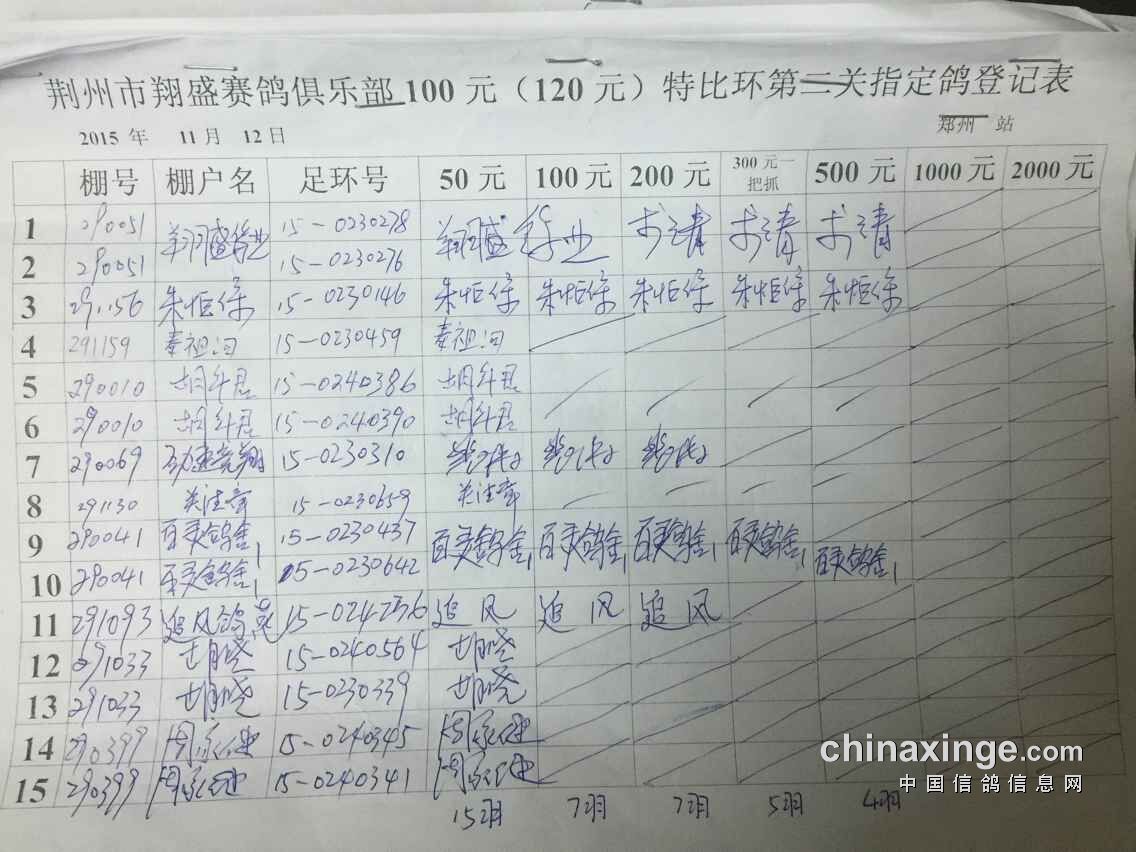 荆州市翔盛赛鸽俱乐部100元（120元）特比环第二关指定鸽登记表
2015 年 11 月 12 日 郑州 站
棚号 棚户名 足环号 50元 100元 200元 300元一把抓 500元 1000元 2000元
1 290051 翔盛伟业 15-0230278 翔盛 伟业
2 290051 15-0230276
3 291156 朱恒保 15-0230146 朱恒保 朱恒保 朱恒保 朱恒保 朱恒保
4 291159 秦祖河 15-0230459 秦祖河
5 290010 胡斗君 15-0240386 胡斗君
6 290010 胡斗君 15-0240390 胡斗君
7 290069 15-0230310
8 291130 关注章 15-0230659 关注章
9 290041 百灵鸽舍 15-0230437 百灵鸽舍 百灵鸽舍 百灵鸽舍 百灵鸽舍 百灵鸽舍
10 290041 百灵鸽舍 15-0230642
11 291093 追风鸽苑 追风 追风 追风
12 291033 胡晓 15-0240564 胡晓
13 291033 胡晓 15-0230339 胡晓
14 290399 15-0240345
15 290399 15-0240341
15羽 7羽 7羽 5羽 4羽
chinaxinge.com
中国信鸽信息网